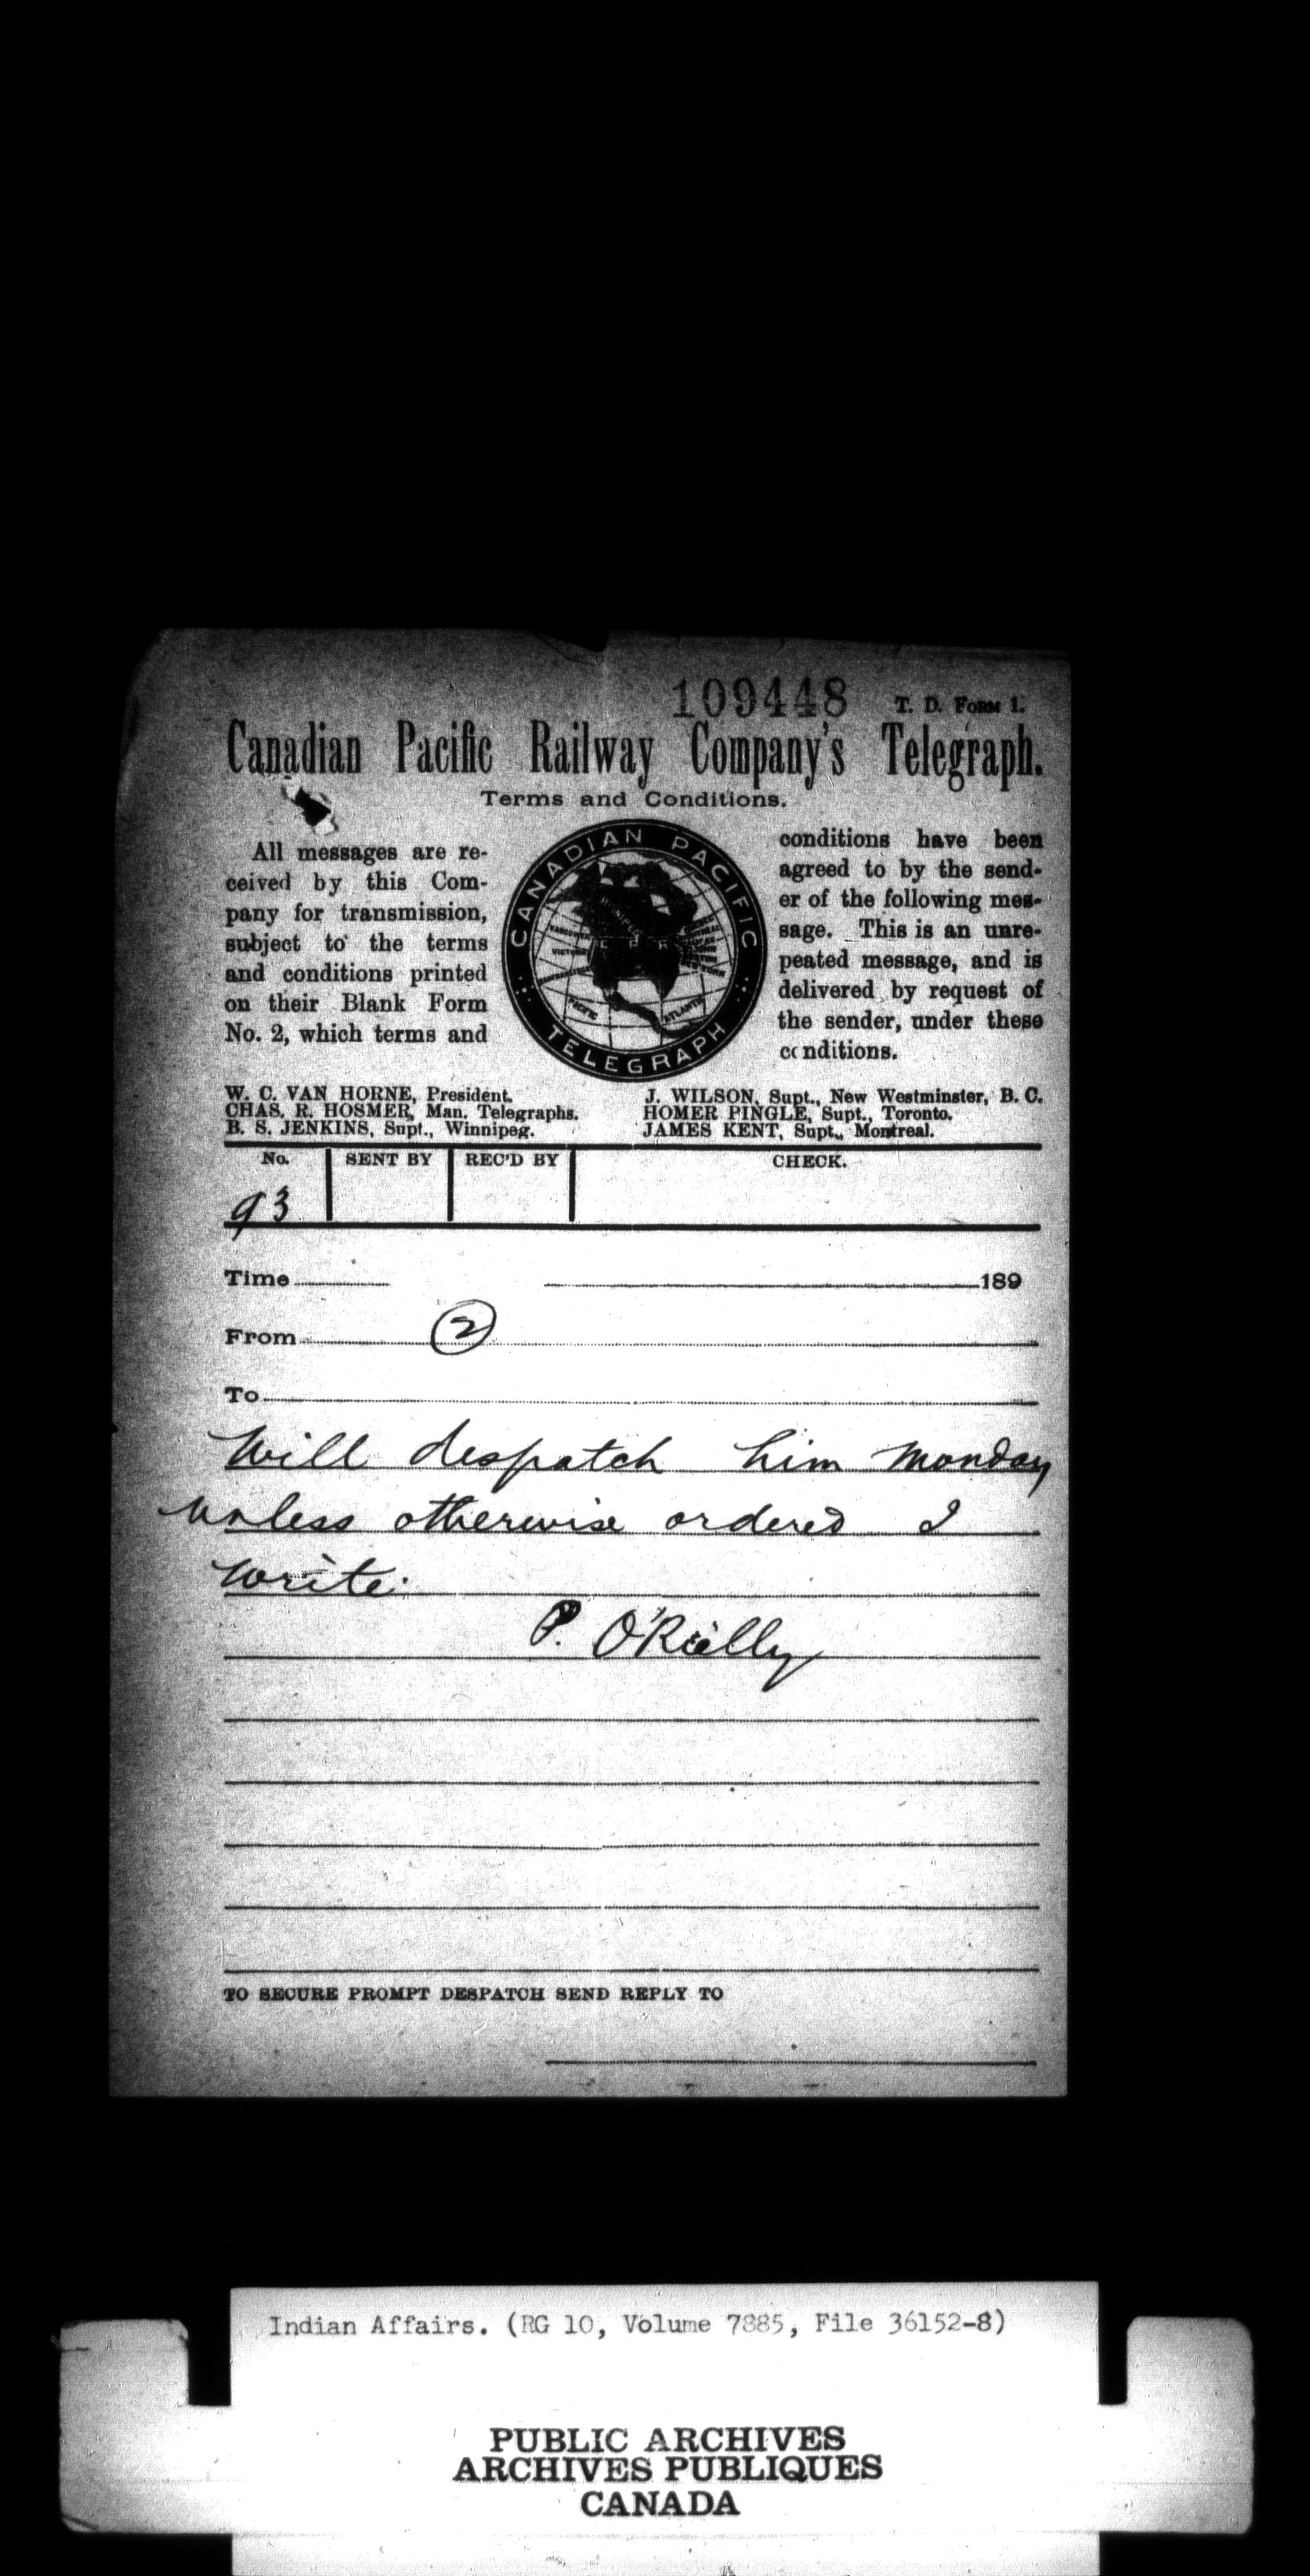 109448 T. D. FORM 1.
Canadian Pacific Railway Company's Telegraph.
Terms and Conditions.
All messages are re-
ceived by this Com-
pany for transmission,
subject to the terms
and conditions printed
on their Blank Form
No. 2, which terms and
CANADIAN PACIFIC
TELEGRAPH
conditions have been
agreed to by the send-
er of the following mes-
sage. This is an unre-
peated message, and is
delivered by request of
the sender, under these
conditions.
W. C. VAN HORNE, President.
CHAS. R. HOSMER, Man. Telegraphs.
B. S. JENKINS, Supt., Winnipeg.
J. WILSON, Supt., New Westminster, B. C.
HOMER PINGLE, Supt., Toronto.
JAMES KENT, Supt., Montreal.
No. SENT BY REC'D BY CHECK.
93
Time 189
From 2
To
Will despatch him Monday
unless otherwise ordered I
write.
P. O'Rielly
TO SECURE PROMPT DESPATCH SEND REPLY TO
Indian Affairs. (RG 10, Volume 7885, File 36152-8)
PUBLIC ARCHIVES
ARCHIVES PUBLIQUES
CANADA